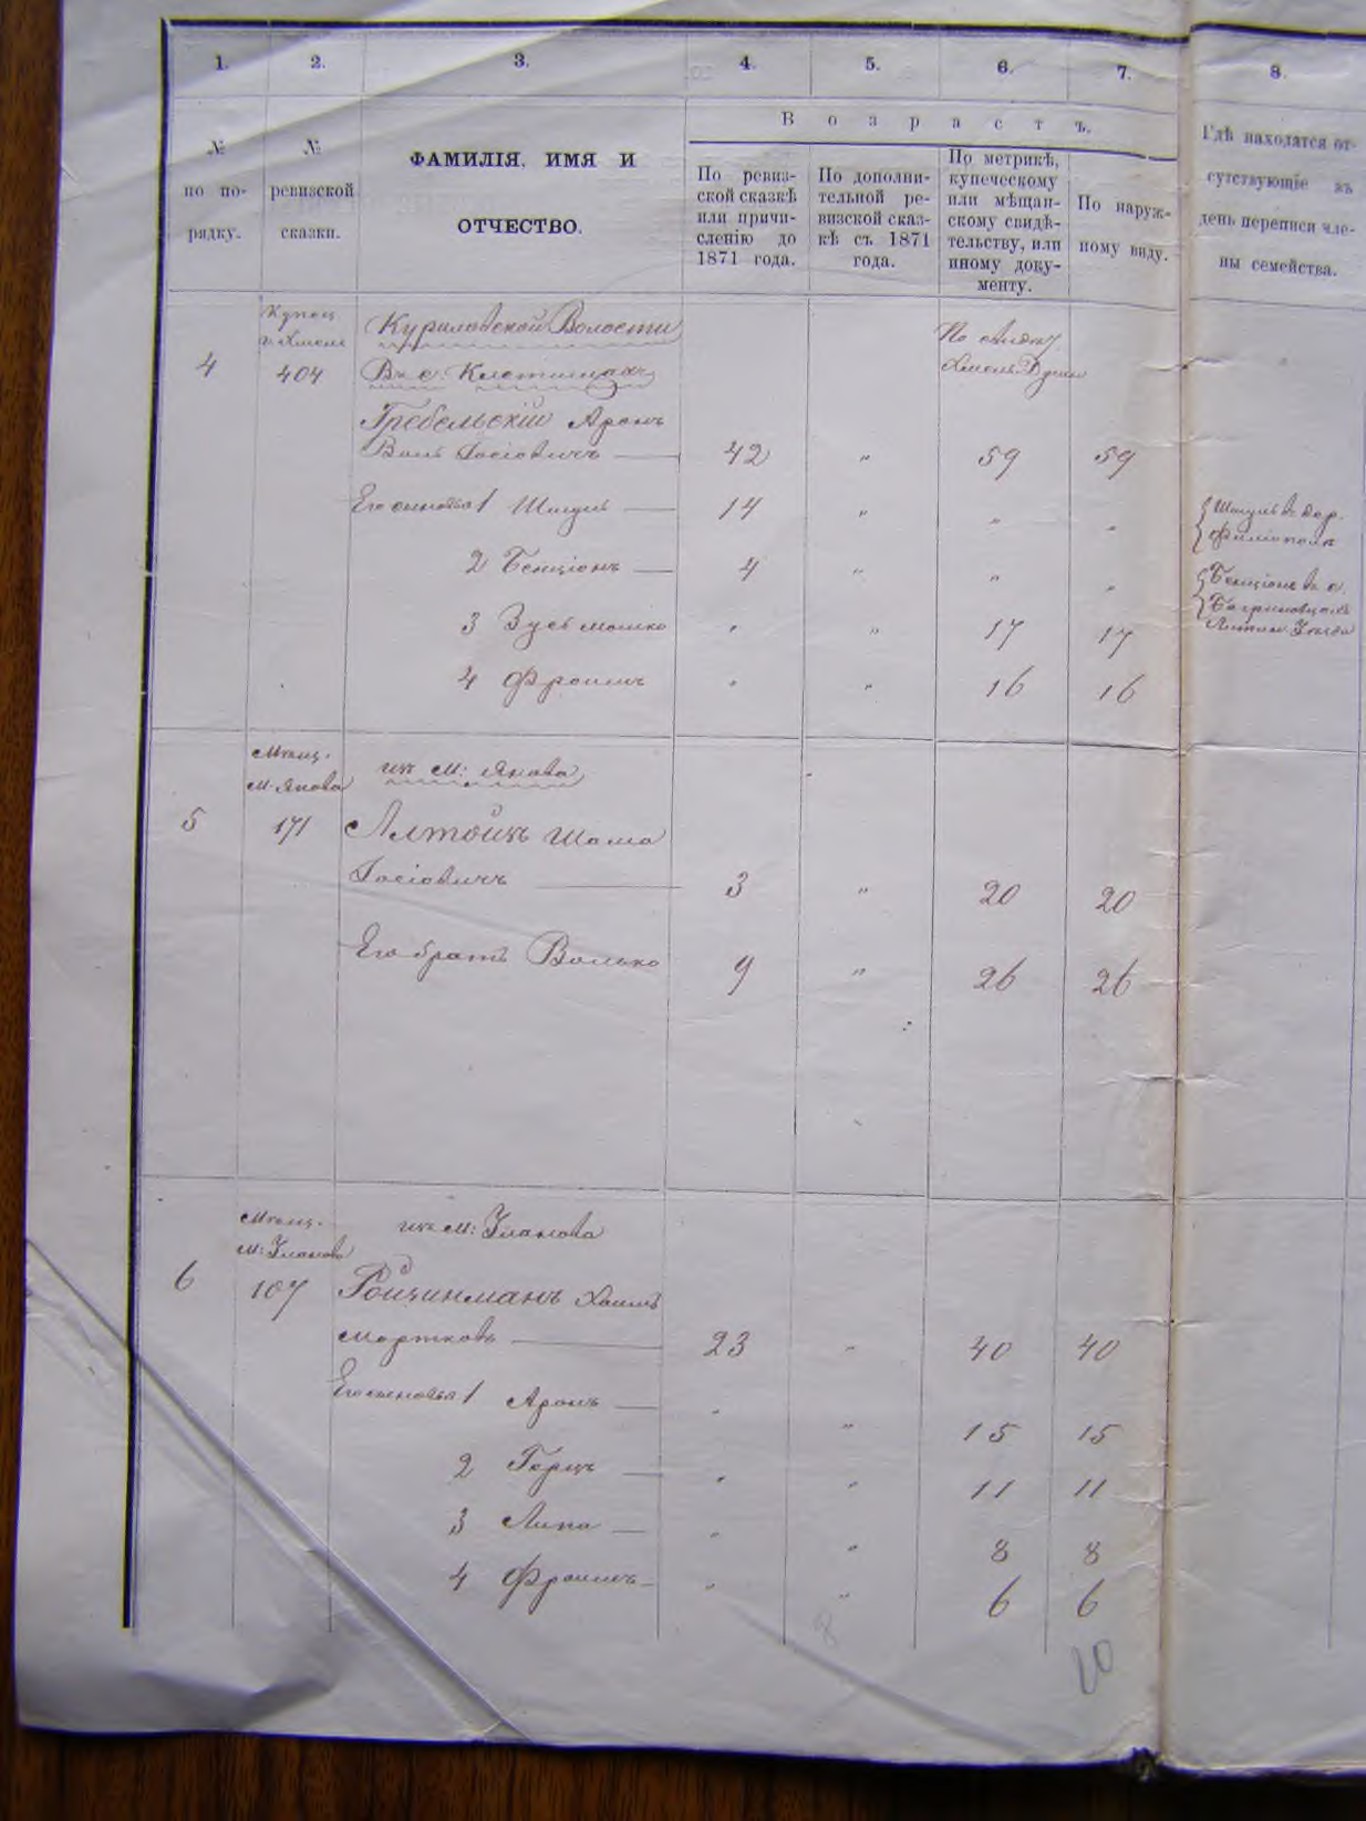 1. 2. 3. 4. 5. 6. 7. 8.
В о з р а с т ъ.
№
по по-
рядку.
№
ревизской
сказки.
ФАМИЛІЯ, ИМЯ И
ОТЧЕСТВО.
По ревиз-
ской сказкѣ
или причи-
сленію до
1871 года.
По дополни-
тельной ре-
визской сказ-
кѣ съ 1871
года.
По метрикѣ,
купеческому
или мѣщан-
скому свидѣ-
тельству, или
иному доку-
менту.
По наруж-
ному виду.
Гдѣ находятся от-
сутствующіе въ
день переписи чле-
ны семейства.
Купец
4
404
Куриловской Волости
Въ с.
По
Гребельскій Аронъ
Іосіовичъ 42 " 59 59
Его сыновья 1 Шмуль 14 " " "
Шмуль въ
2 Бенціонъ 4 " " "
Бенціонъ въ с.
3 Зусь Мошко " " 17 17
4 Фроимъ " " 16 16
Мѣщ.
м. Янова
5
171
изъ м: Янова
Алтойзъ Шома
Іосіовичъ 3 " 20 20
Его братъ Волько 9 " 26 26
Мѣщ.
м: Уланова
6
107
изъ м: Уланова
Ройзинманъ Хаимъ
Мортковъ 23 " 40 40
Его сыновья 1 Аронъ " " 15 15
2 Герцъ " " 11 11
3 Липа " " 8 8
4 Фроимъ " " 6 6
8
20